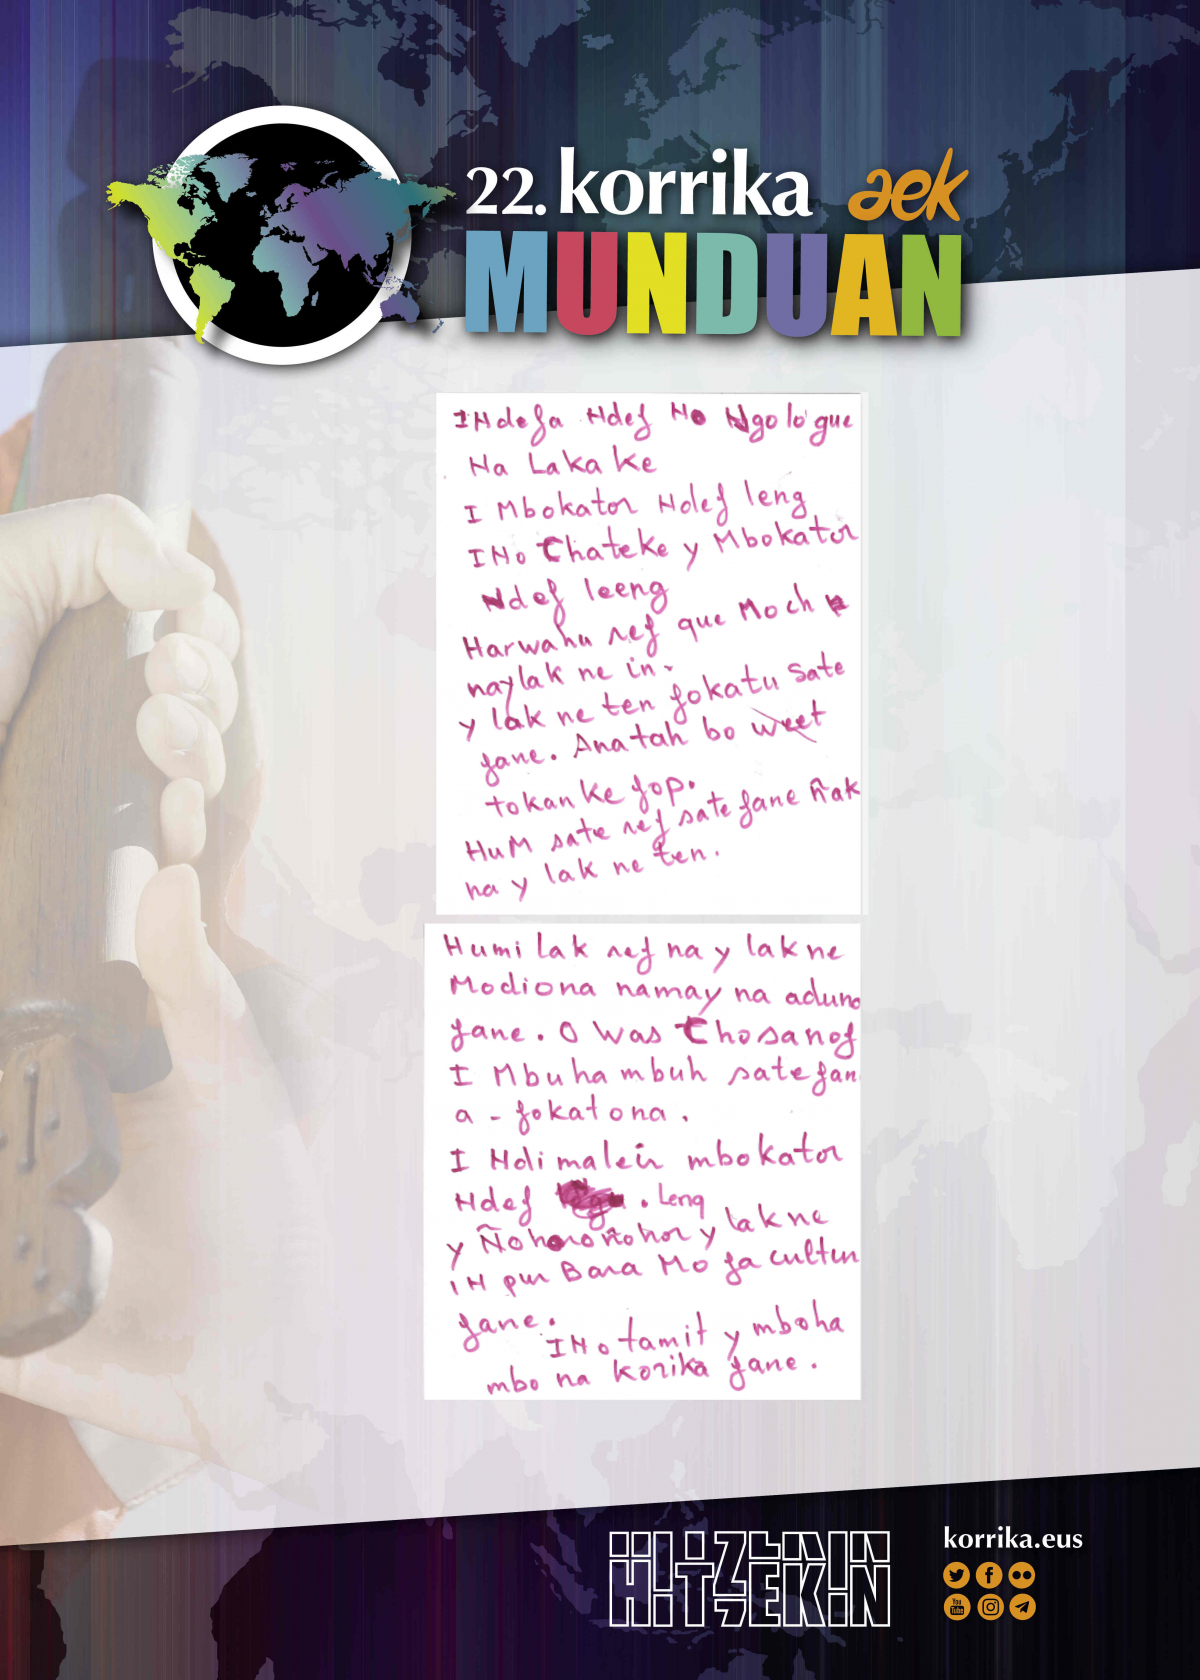 22. korrika aek
MUNDUAN
INdefa Ndef No Ngolo'gue
Na Laka ke
I Mbokator Ndef leng
INo Chateke y Mbokator
Ndef leeng
Harwahu ref que Moch
naylak ne in.
y lak ne ten fokatu sate
fane. Anatah bo
tokan ke fop.
HuM sate ref sate fane ñak
na y lak ne ten.
Humi lak ref na y lak ne
Modiona namay na aduno
fane. O was Chosanof
I Mbuha mbuh sate fan
a - fokatona.
I Ndimaleir mbokator
Ndef . Leng
y Ñohoroñohor y lak ne
iN pur Bara Mo fa cultur
fane.
INo tamit y mboha
mbo na korika fane.
HITZEKIN
korrika.eus
You
Tube